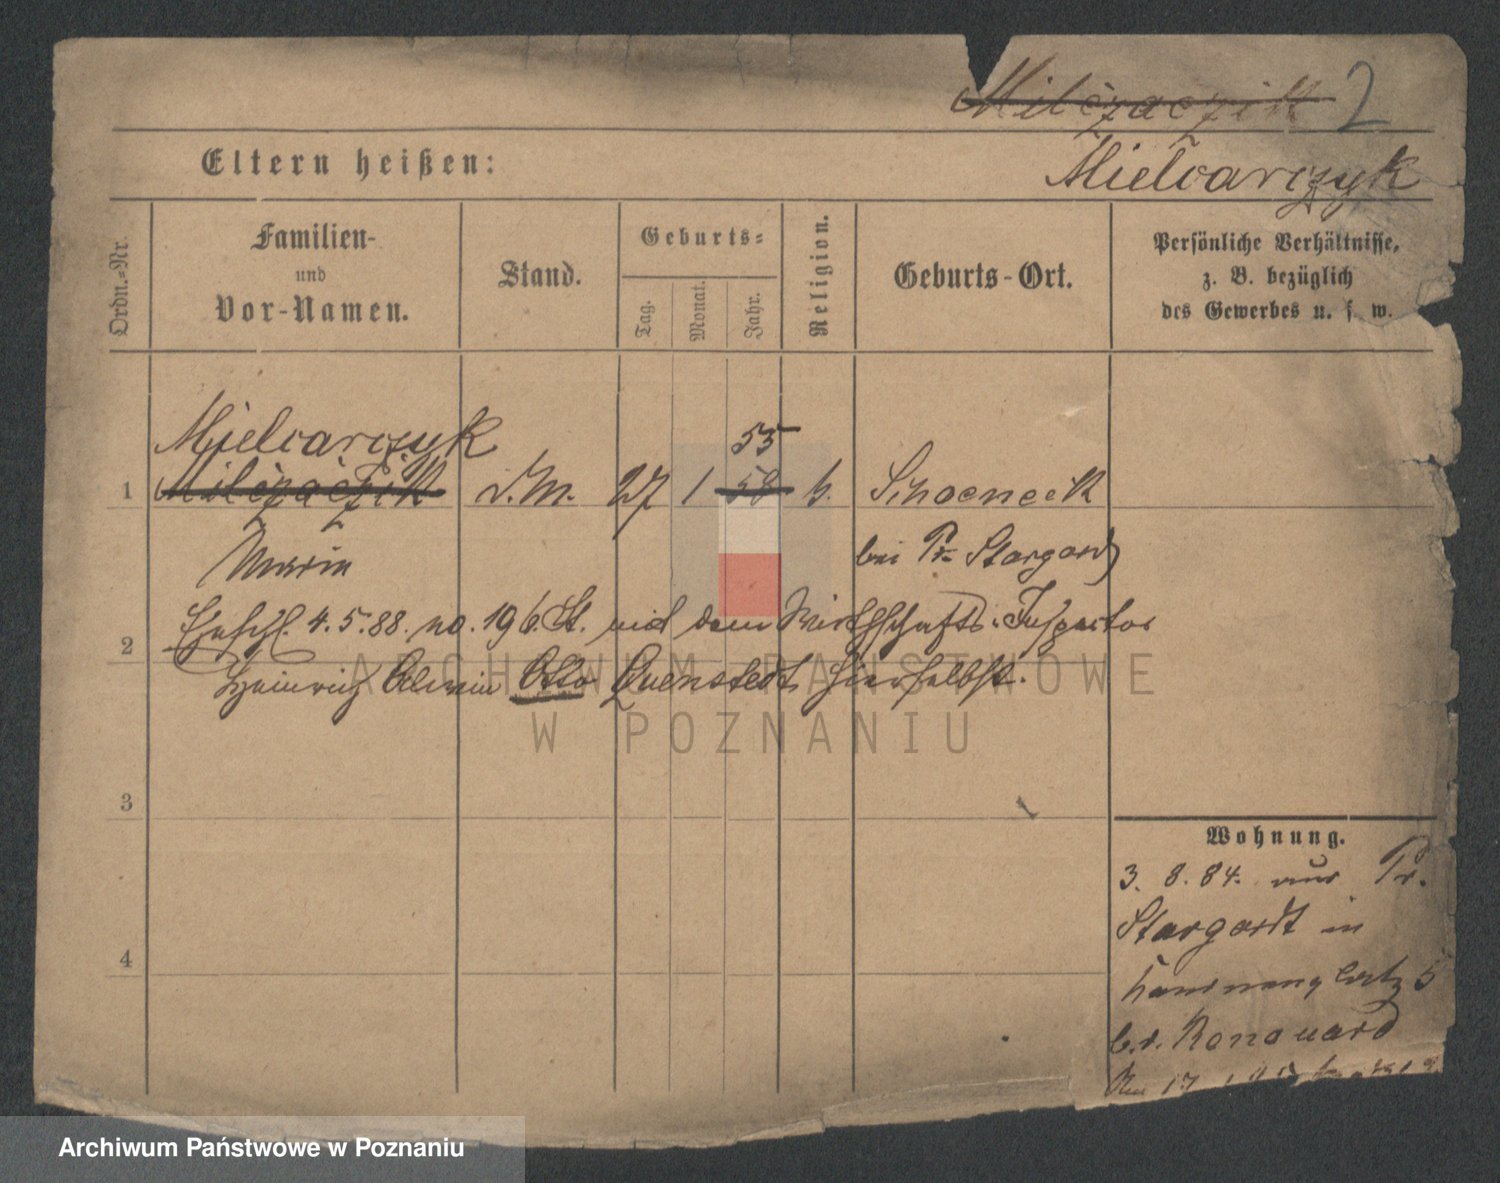 Milczaczik 2
Eltern heißen:
Mielcarczyk
Ordn.-Nr.
Familien-
und
Vor-Namen.
Stand.
Geburts-
Tag.
Monat.
Jahr.
Religion.
Geburts-Ort.
Persönliche Verhältnisse,
z. B. bezüglich
des Gewerbes u. s. w.
Mielcarczyk 55
1 Milczaczik d. M. 27 1 58 k. Schoeneck
Marie bei Pr. Stargardt
Ehschl. 4.5.88. no. 196. St. mit dem Wirthschafts-Inspector
2
Heinrich Alwin Otto Quenstedt hierselbst.
ARCHIWUM PAŃSTWOWE
W POZNANIU
3
4
Wohnung.
3. 8. 84. aus Pr.
Stargardt in
5
b. d.
17
Archiwum Państwowe w Poznaniu